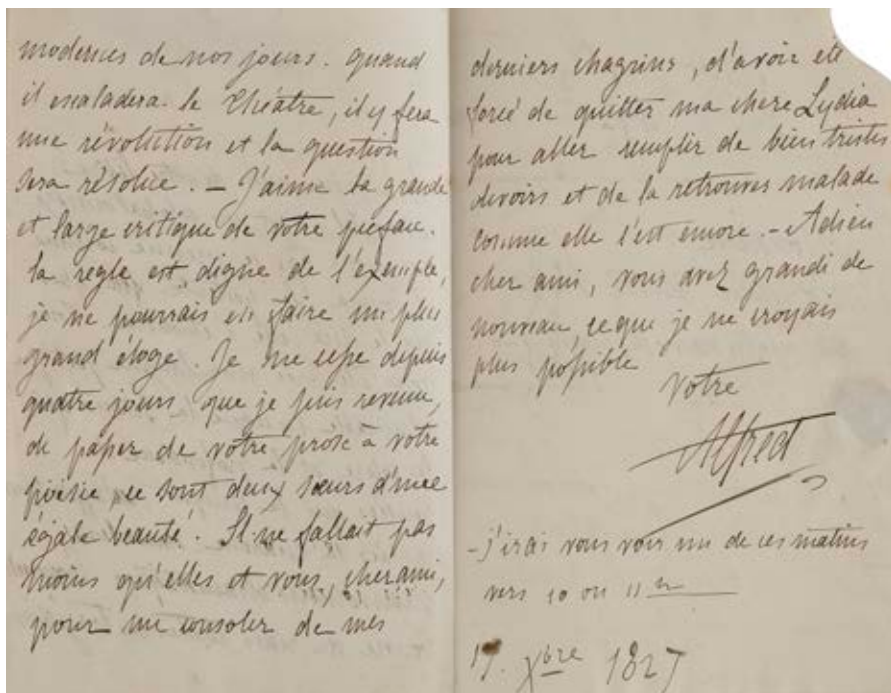 modernes de nos jours. quand
il escaladera le Théâtre, il y fera
une révolution et la question
sera résolue. – J'aime la grande
et large critique de votre préface.
la regle est digne de l'exemple,
je ne pourrais en faire un plus
grand éloge. Je ne cesse depuis
quatre jours que je suis revenu,
de passer de votre prose à votre
poësie, ce sont deux sœurs d'une
égale beauté. Il ne fallait pas
moins qu'elles et vous, cher ami,
pour me consoler de mes
derniers chagrins, d'avoir été
forcé de quitter ma chere Lydia
pour aller remplir de bien tristes
devoirs et de la retrouver malade
comme elle l'est encore. – Adieu
cher ami, vous avez grandi de
nouveau, ce que je ne croyais
plus possible
Votre
Alfred
– j'irai vous voir un de ces matins
vers 10 ou 11 h
Xbre 1827